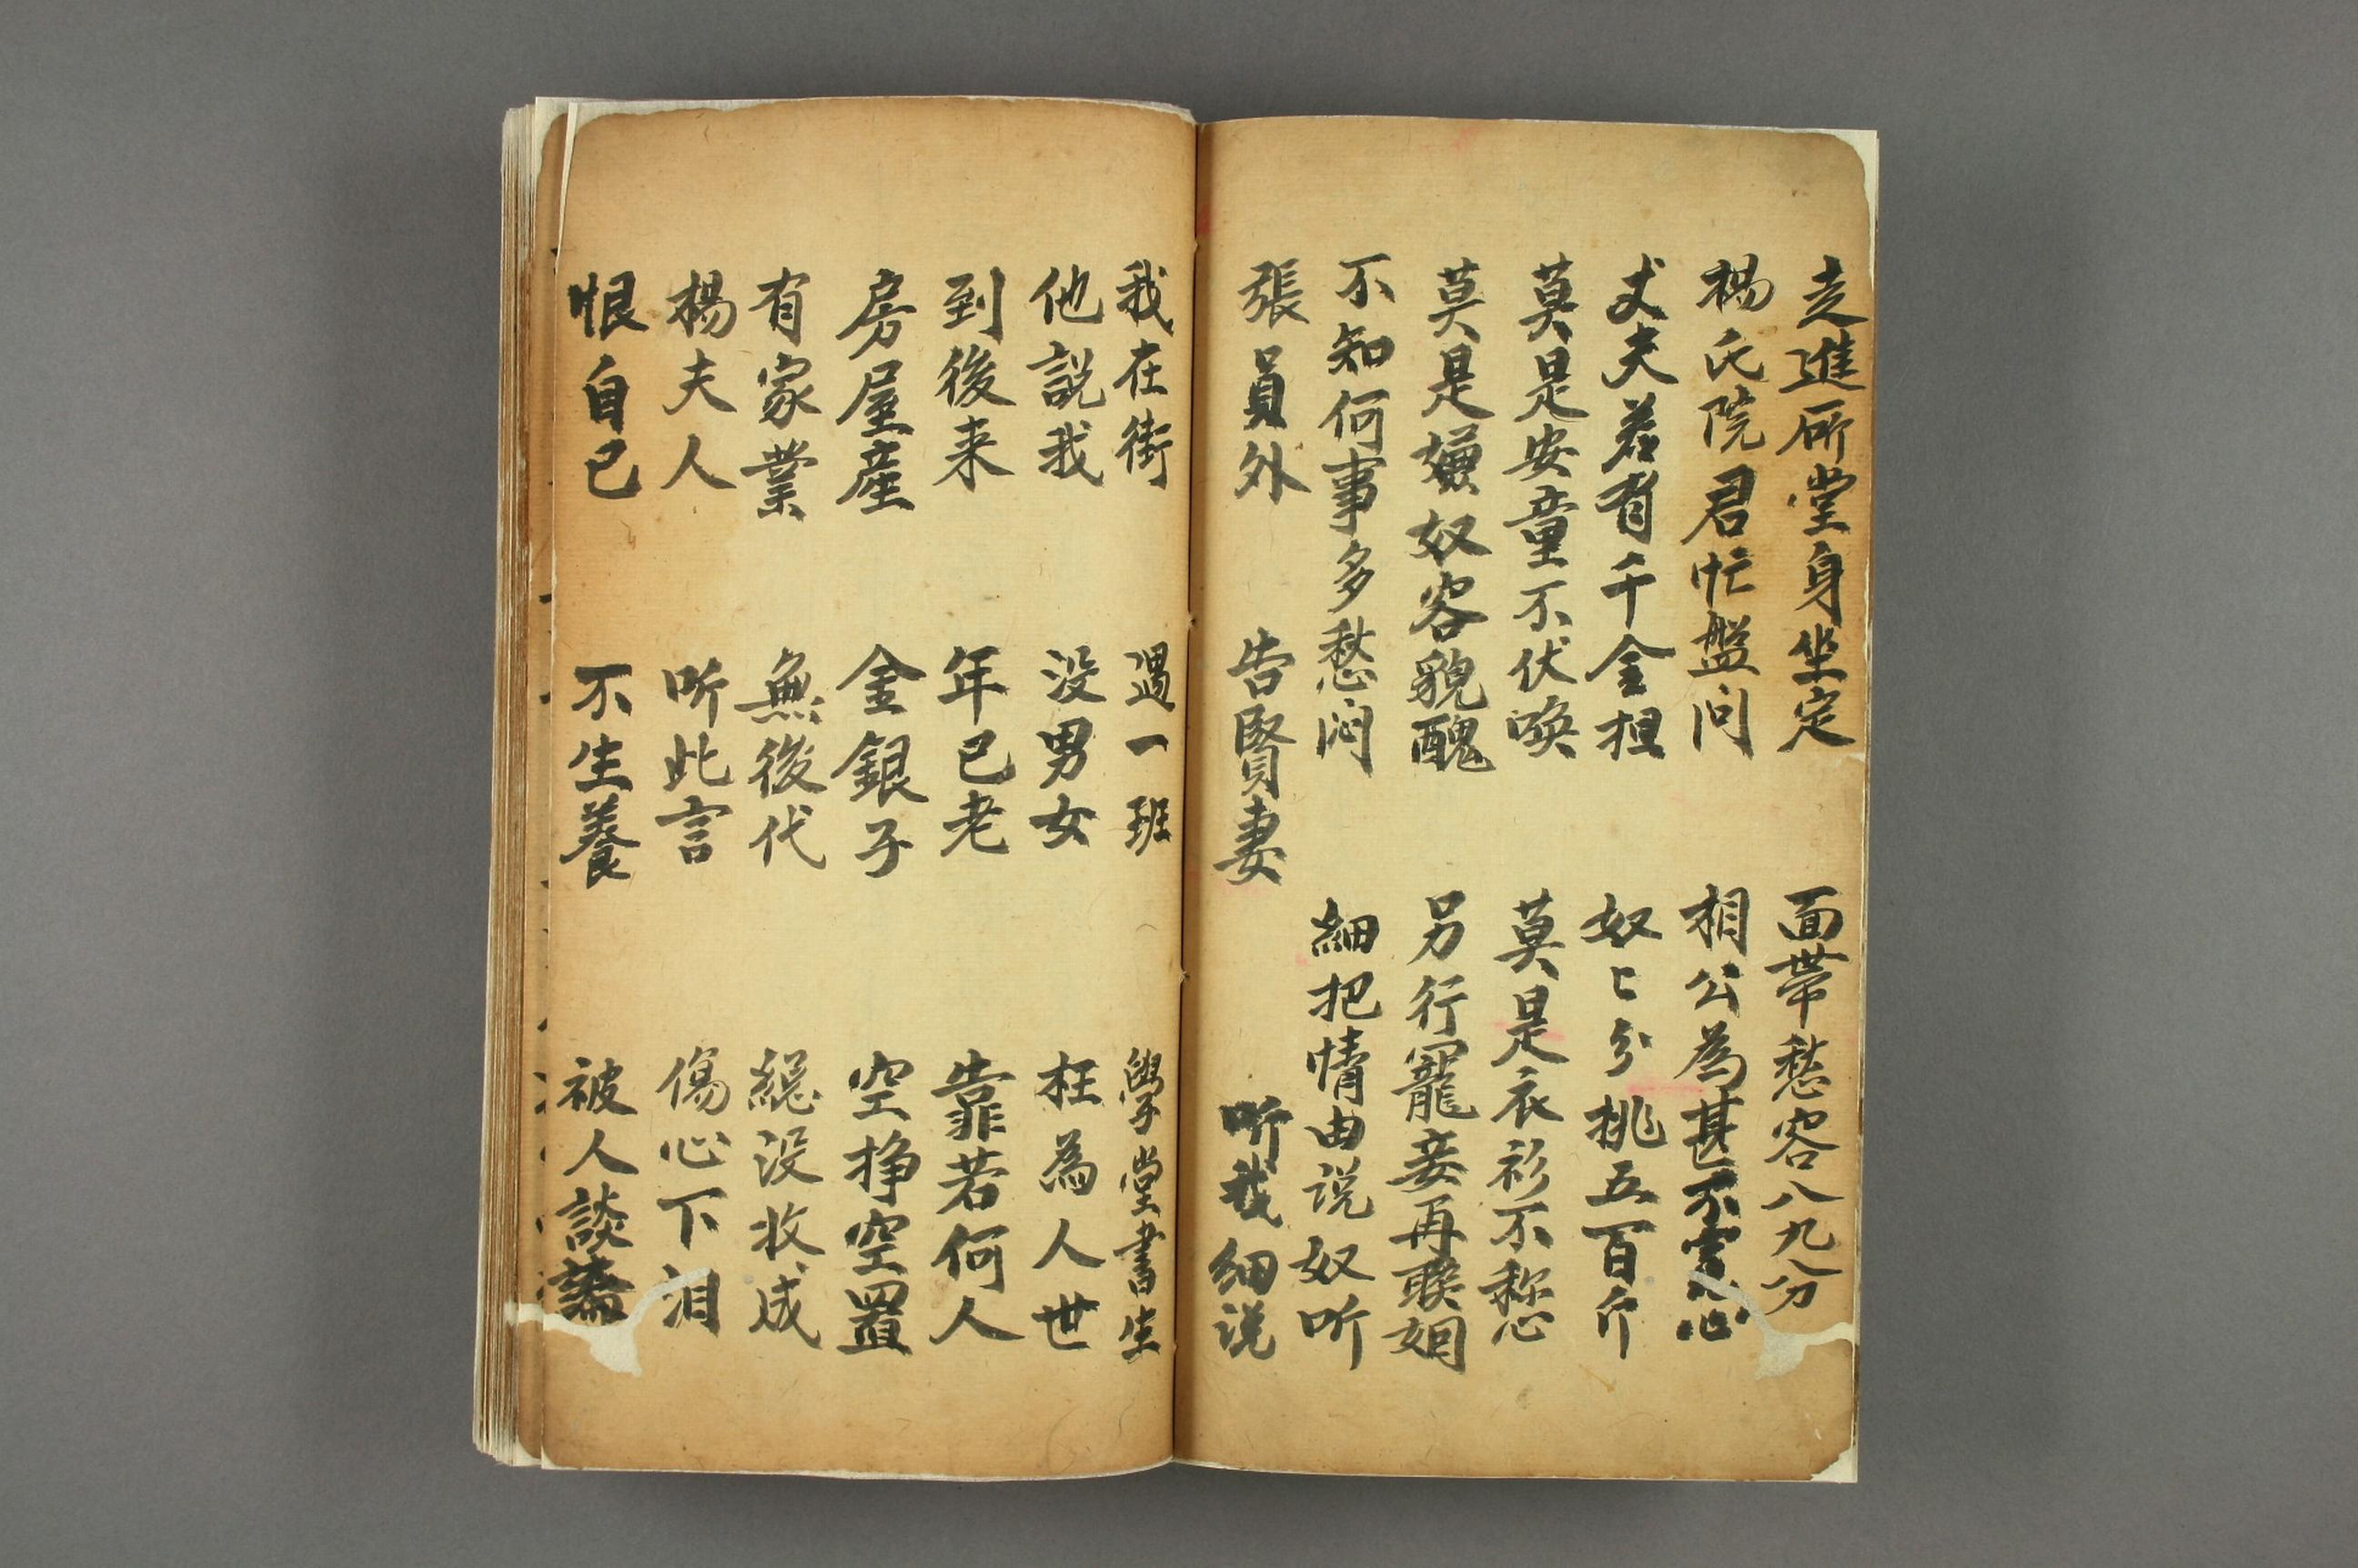 走進所堂身坐定 面帶愁容八九分
楊氏院君忙盤问 相公為甚不寬心
丈夫若有千金担 奴匕分挑五百斤
莫是安童不伏唤 莫是衣衫不称您
莫是嫌奴容貌醜 另行寵妾再联姻
不知何事多愁闷 細把情由说奴听
張員外 告賢妻 听我細说
我在街 遇一班 學堂書生
他説我 没男女 枉為人世
到後来 年已老 靠若何人
房屋産 金銀子 空掙空置
有家業 無後代 総没收成
楊夫人 听此言 傷心下泪
恨自己 不生養 被人談